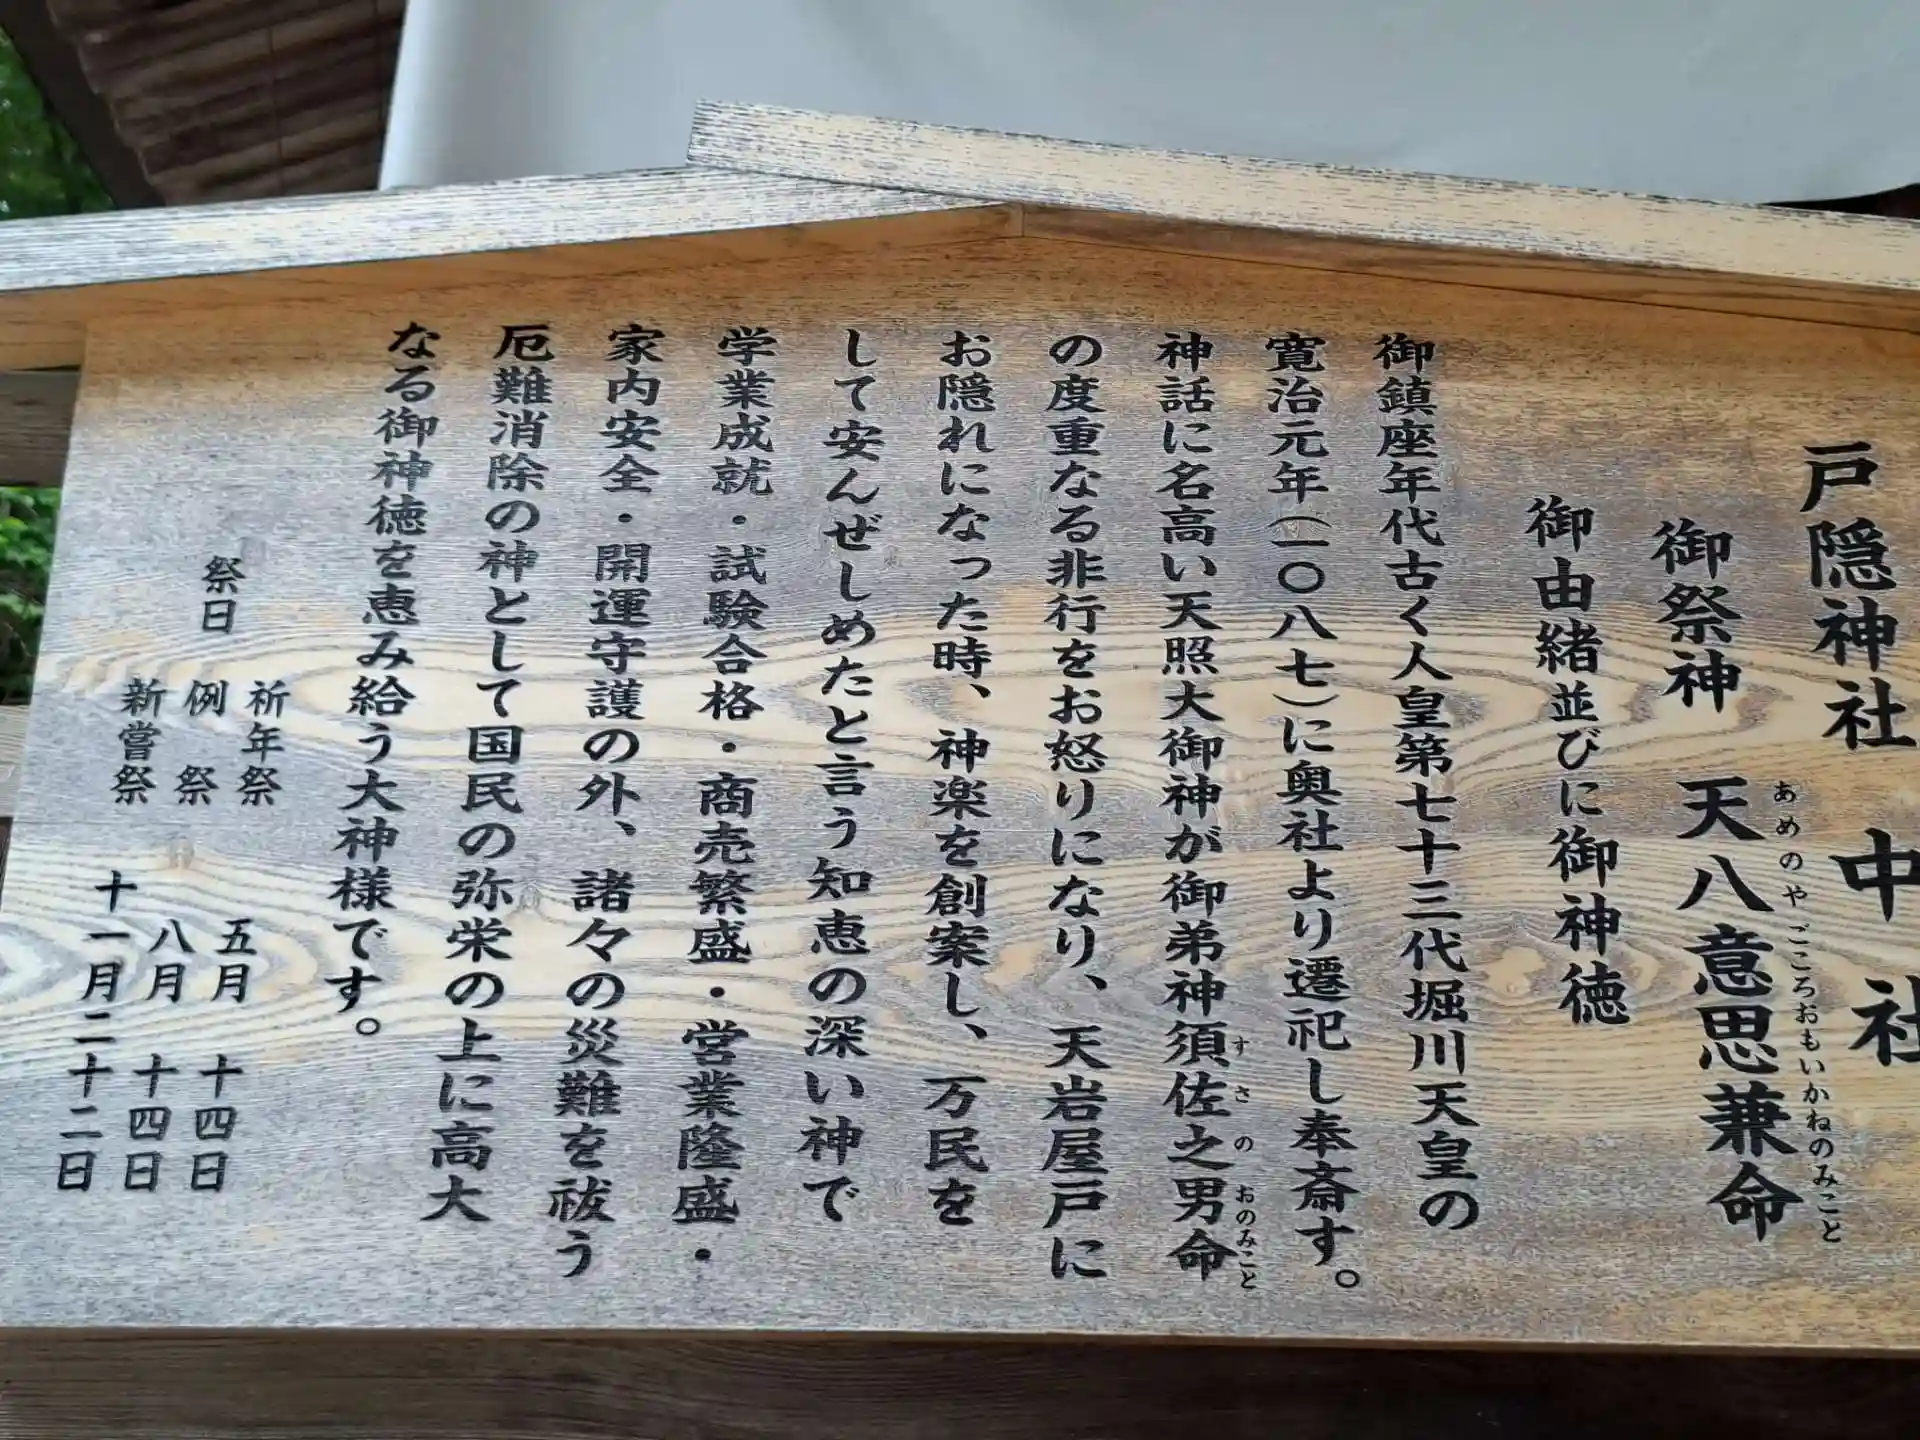 戸隠神社 中社
御祭神 天八意思兼命
あめのやごころおもいかねのみこと
御由緒並びに御神徳
御鎮座年代古く人皇第七十三代堀川天皇の
寛治元年(一〇八七)に奥社より遷祀し奉斎す。
神話に名高い天照大御神が御弟神須佐之男命
すさのおのみこと
の度重なる非行をお怒りになり、天岩屋戸に
お隠れになった時、神楽を創案し、万民を
して安んぜしめたと言う知恵の深い神で
学業成就・試験合格・商売繁盛・営業隆盛・
家内安全・開運守護の外、諸々の災難を祓う
厄難消除の神として国民の弥栄の上に高大
なる御神徳を恵み給う大神様です。
祭日 祈年祭 五月 十四日
例祭 八月 十四日
新嘗祭 十一月二十二日